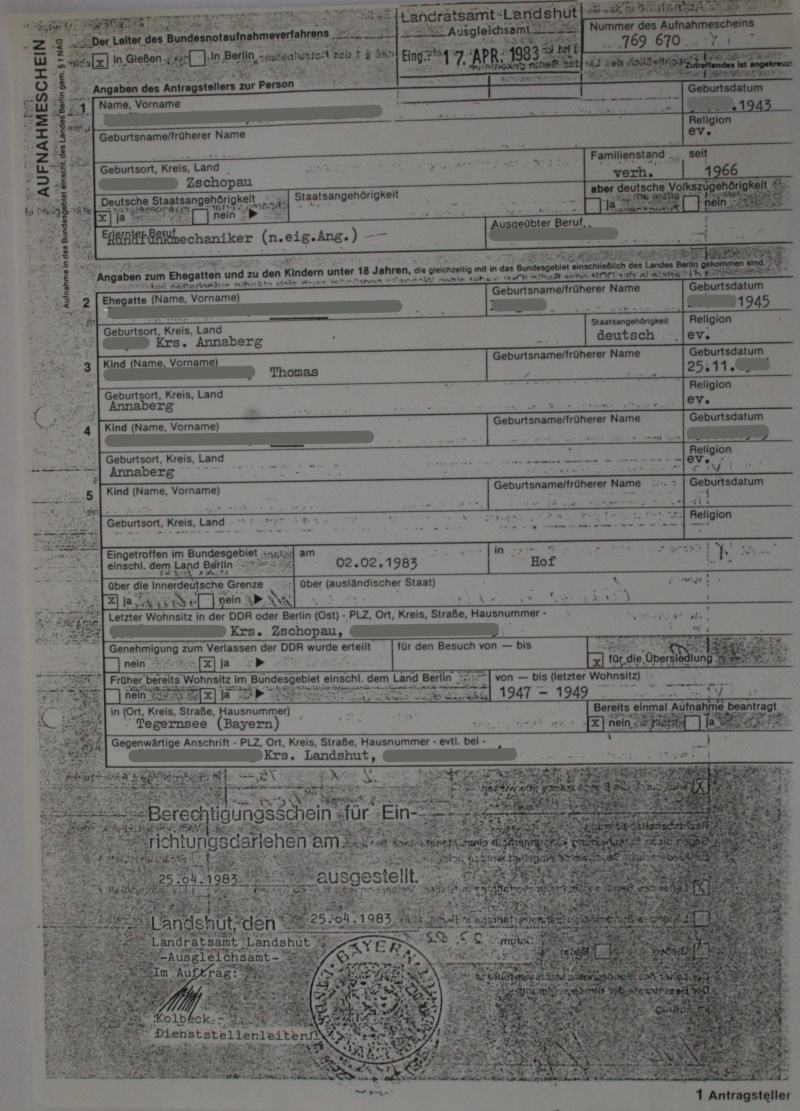 AUFNAHMESCHEIN
Aufnahme in das Bundesgebiet einschl. des Landes Berlin gem. § 1 NAG
Der Leiter des Bundesnotaufnahmeverfahrens
x in Gießen in Berlin
Landratsamt Landshut
Ausgleichsamt
Eing.: 17. APR. 1983
Nummer des Aufnahmescheins
769 670
Zutreffendes ist angekreuzt
Angaben des Antragstellers zur Person
1 Name, Vorname
Geburtsdatum
.1943
Geburtsname/früherer Name
Religion
ev.
Geburtsort, Kreis, Land
Zschopau
Familienstand seit
verh. 1966
Deutsche Staatsangehörigkeit
x ja nein
Staatsangehörigkeit
aber deutsche Volkszugehörigkeit
ja nein
Erlernter Beruf
Rundfunkmechaniker (n.eig.Ang.)
Ausgeübter Beruf
Angaben zum Ehegatten und zu den Kindern unter 18 Jahren, die gleichzeitig mit in das Bundesgebiet einschließlich des Landes Berlin gekommen sind.
2 Ehegatte (Name, Vorname)
Geburtsname/früherer Name
Geburtsdatum
1945
Geburtsort, Kreis, Land
Krs. Annaberg
Staatsangehörigkeit
deutsch
Religion
ev.
3 Kind (Name, Vorname)
Thomas
Geburtsname/früherer Name
Geburtsdatum
25.11.
Geburtsort, Kreis, Land
Annaberg
Religion
ev.
4 Kind (Name, Vorname)
Geburtsname/früherer Name
Geburtsdatum
Geburtsort, Kreis, Land
Annaberg
Religion
ev.
5 Kind (Name, Vorname)
Geburtsname/früherer Name
Geburtsdatum
Geburtsort, Kreis, Land
Religion
Eingetroffen im Bundesgebiet
einschl. dem Land Berlin
am
02.02.1983
in
Hof
über die innerdeutsche Grenze
x ja nein
über (ausländischer Staat)
Letzter Wohnsitz in der DDR oder Berlin (Ost) - PLZ, Ort, Kreis, Straße, Hausnummer -
Krs. Zschopau,
Genehmigung zum Verlassen der DDR wurde erteilt
nein x ja
für den Besuch von — bis
x für die Übersiedlung
Früher bereits Wohnsitz im Bundesgebiet einschl. dem Land Berlin
nein x ja
von — bis (letzter Wohnsitz)
1947 - 1949
in (Ort, Kreis, Straße, Hausnummer)
Tegernsee (Bayern)
Bereits einmal Aufnahme beantragt
x nein ja
Gegenwärtige Anschrift - PLZ, Ort, Kreis, Straße, Hausnummer - evtl. bei -
Krs. Landshut,
Berechtigungsschein für Ein-
richtungsdarlehen am
25.04.1983 ausgestellt.
Landshut, den 25.04.1983
Landratsamt Landshut
-Ausgleichsamt-
Im Auftrag:
Kolbeck
Dienststellenleiter
BAYERN
1 Antragsteller